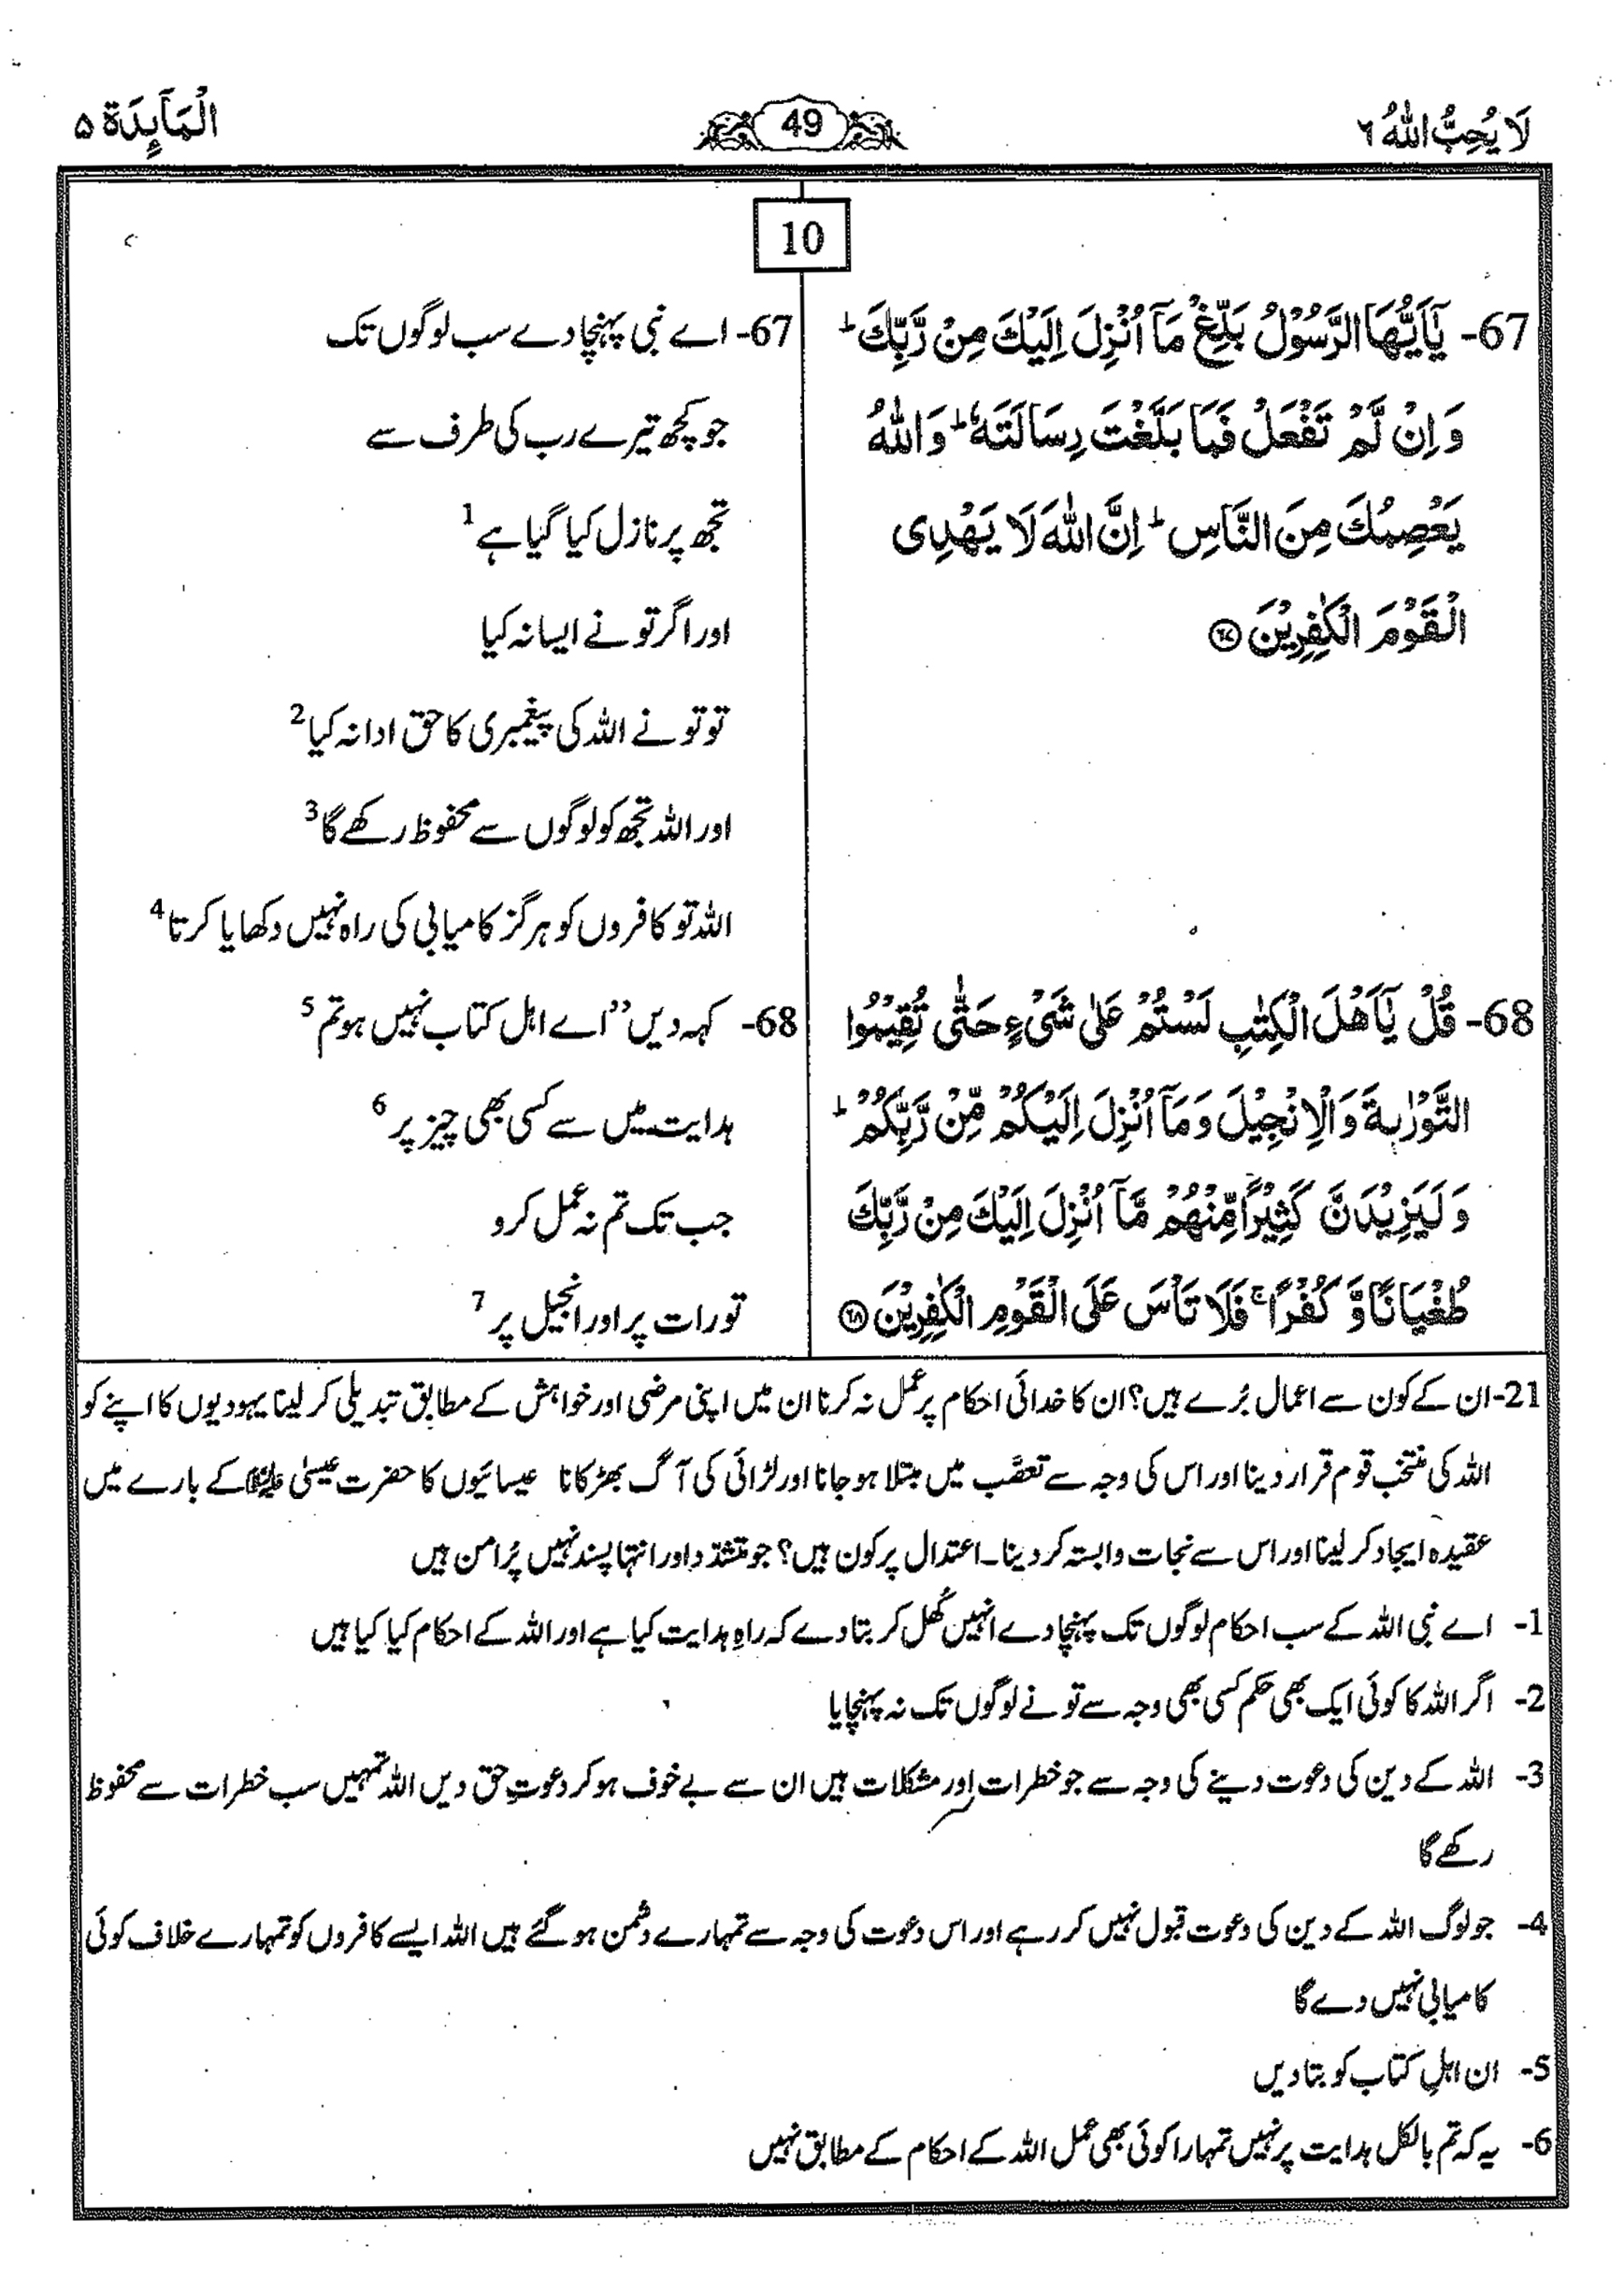 لَا يُحِبُّ اللهُ ٦
49
الْمَآئِدَة ۵
10
67- يٰۤاَيُّهَا الرَّسُوْلُ بَلِّغْ مَاۤ اُنْزِلَ اِلَيْكَ مِنْ رَّبِّكَ ؕ
وَ اِنْ لَّمْ تَفْعَلْ فَمَا بَلَّغْتَ رِسَالَتَهٗ ؕ وَ اللهُ
يَعْصِمُكَ مِنَ النَّاسِ ؕ اِنَّ اللهَ لَا يَهْدِى
الْقَوْمَ الْكٰفِرِيْنَ ۝٦٧
67- اے نبی پہنچا دے سب لوگوں تک
جو کچھ تیرے رب کی طرف سے
تجھ پر نازل کیا گیا ہے 1
اور اگر تو نے ایسا نہ کیا
تو تو نے اللہ کی پیغمبری کا حق ادا نہ کیا 2
اور اللہ تجھ کو لوگوں سے محفوظ رکھے گا 3
اللہ تو کافروں کو ہرگز کامیابی کی راہ نہیں دکھایا کرتا 4
68- قُلْ يٰۤاَهْلَ الْكِتٰبِ لَسْتُمْ عَلٰى شَىْءٍ حَتّٰى تُقِيْمُوا
التَّوْرٰىةَ وَ الْاِنْجِيْلَ وَ مَاۤ اُنْزِلَ اِلَيْكُمْ مِّنْ رَّبِّكُمْ ؕ
وَ لَيَزِيْدَنَّ كَثِيْرًا مِّنْهُمْ مَّاۤ اُنْزِلَ اِلَيْكَ مِنْ رَّبِّكَ
طُغْيَانًا وَّ كُفْرًا ۚ فَلَا تَاْسَ عَلَى الْقَوْمِ الْكٰفِرِيْنَ ۝٦٨
68- کہہ دیں ”اے اہل کتاب نہیں ہو تم 5
ہدایت میں سے کسی بھی چیز پر 6
جب تک تم نہ عمل کرو
تورات پر اور انجیل پر 7
21- ان کے کون سے اعمال بُرے ہیں؟ ان کا خدائی احکام پر عمل نہ کرنا ان میں اپنی مرضی اور خواہش کے مطابق تبدیلی کر لینا یہودیوں کا اپنے کو
اللہ کی منتخب قوم قرار دینا اور اس کی وجہ سے تعصّب میں مبتلا ہو جانا اور لڑائی کی آگ بھڑکانا عیسائیوں کا حضرت عیسیٰ علیہ السلام کے بارے میں
عقیدہ ایجاد کر لینا اور اس سے نجات وابستہ کر دینا۔ اعتدال پر کون ہیں؟ جو متشدّد اور انتہا پسند نہیں پُر امن ہیں
1- اے نبی اللہ کے سب احکام لوگوں تک پہنچا دے انہیں کُھل کر بتا دے کہ راہِ ہدایت کیا ہے اور اللہ کے احکام کیا کیا ہیں
2- اگر اللہ کا کوئی ایک بھی حکم کسی بھی وجہ سے تو نے لوگوں تک نہ پہنچایا
3- اللہ کے دین کی دعوت دینے کی وجہ سے جو خطرات اور مشکلات ہیں ان سے بے خوف ہو کر دعوتِ حق دیں اللہ تمہیں سب خطرات سے محفوظ
رکھے گا
4- جو لوگ اللہ کے دین کی دعوت قبول نہیں کر رہے اور اس دعوت کی وجہ سے تمہارے دشمن ہو گئے ہیں اللہ ایسے کافروں کو تمہارے خلاف کوئی
کامیابی نہیں دے گا
5- ان اہلِ کتاب کو بتا دیں
6- یہ کہ تم بالکل ہدایت پر نہیں تمہارا کوئی بھی عمل اللہ کے احکام کے مطابق نہیں